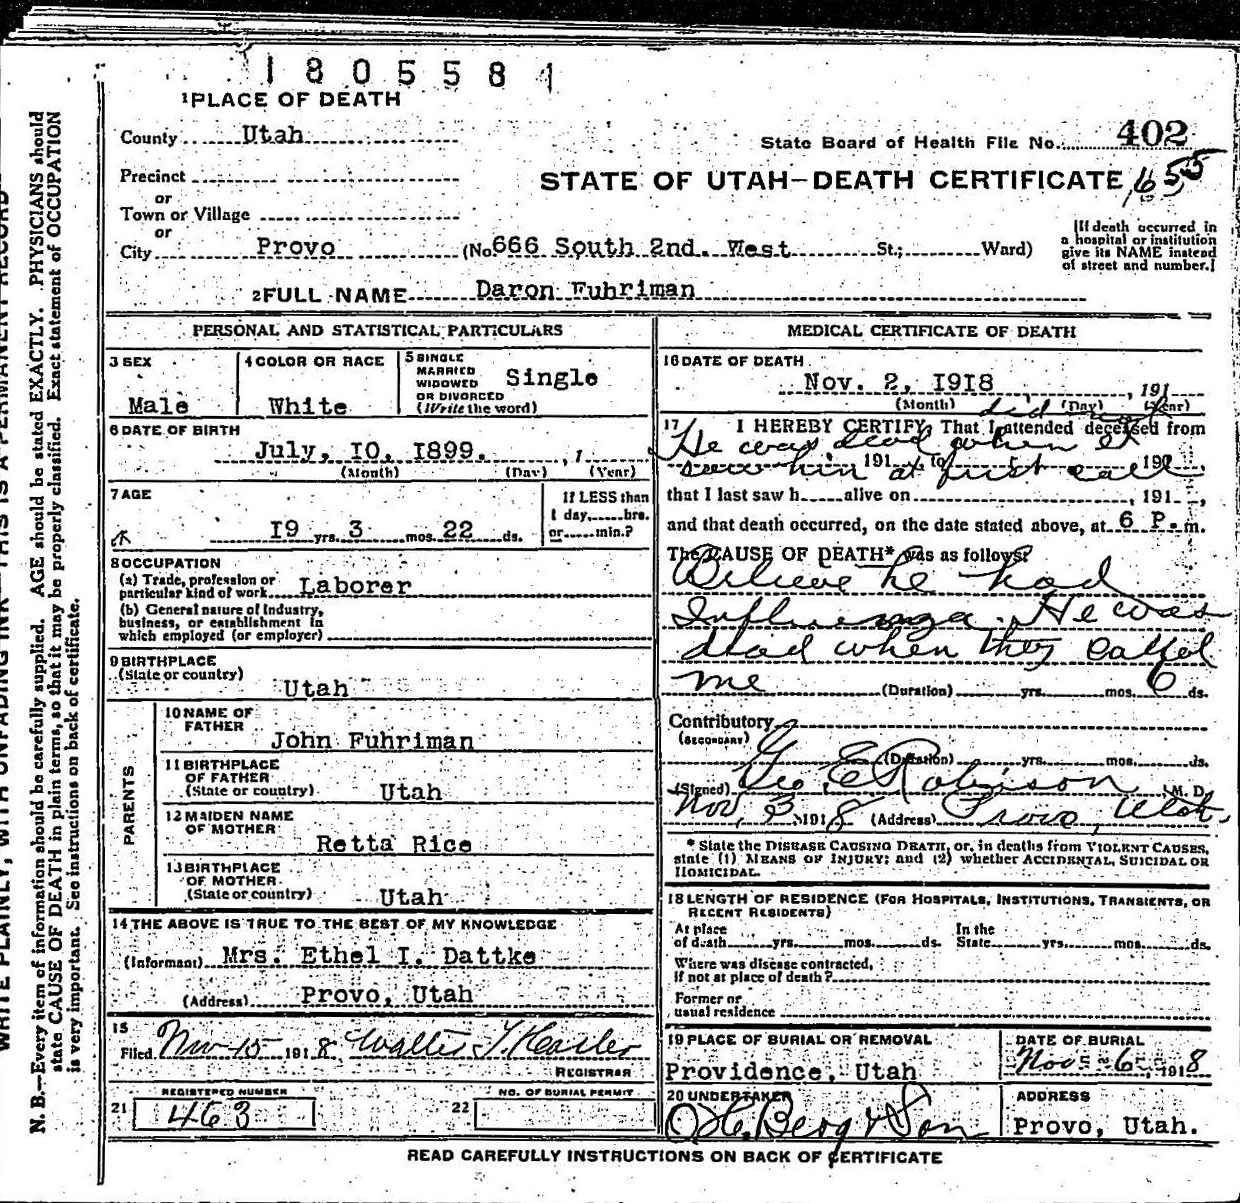 1805581
1 PLACE OF DEATH
County Utah
State Board of Health File No. 402
Precinct
STATE OF UTAH—DEATH CERTIFICATE 655
or
Town or Village
or
City Provo (No. 666 South 2nd. West St.; Ward)
[If death occurred in
a hospital or institution
give its NAME instead
of street and number.]
2 FULL NAME Daron Fuhriman
PERSONAL AND STATISTICAL PARTICULARS
3 SEX
Male
4 COLOR OR RACE
White
5 SINGLE
MARRIED
WIDOWED
OR DIVORCED
(Write the word)
Single
6 DATE OF BIRTH
July, 10. 1899. , 1
(Month) (Day) (Year)
7 AGE
19 yrs. 3 mos. 22 ds.
If LESS than
1 day, hrs.
or min.?
8 OCCUPATION
(a) Trade, profession or
particular kind of work Laborer
(b) General nature of Industry,
business, or establishment in
which employed (or employer)
9 BIRTHPLACE
(State or country)
Utah
PARENTS
10 NAME OF
FATHER
John Fuhriman
11 BIRTHPLACE
OF FATHER
(State or country) Utah
12 MAIDEN NAME
OF MOTHER
Retta Rice
13 BIRTHPLACE
OF MOTHER
(State or country) Utah
14 THE ABOVE IS TRUE TO THE BEST OF MY KNOWLEDGE
(Informant) Mrs. Ethel I. Dattke
(Address) Provo, Utah
15
Filed Nov 15 1918,
REGISTRAR
REGISTERED NUMBER
21 463
NO. OF BURIAL PERMIT
22
MEDICAL CERTIFICATE OF DEATH
16 DATE OF DEATH
Nov. 2, 1918 , 191
(Month) (Day) (Year)
did not
17 I HEREBY CERTIFY, That I attended deceased from
He was dead when I
191 , to 191 ,
saw him at first call
that I last saw h alive on , 191 ,
and that death occurred, on the date stated above, at 6 P. m.
The CAUSE OF DEATH* was as follows:
Believe he had
Influenza. He was
dead when they called
me (Duration) yrs. mos. 6 ds.
Contributory
(SECONDARY)
(Duration) yrs. mos. ds.
(Signed) Geo. E Robison M. D.
Nov, 3 1918 (Address) Provo, Utah.
* State the DISEASE CAUSING DEATH, or, in deaths from VIOLENT CAUSES,
state (1) MEANS OF INJURY; and (2) whether ACCIDENTAL, SUICIDAL OR
HOMICIDAL.
18 LENGTH OF RESIDENCE (FOR HOSPITALS, INSTITUTIONS, TRANSIENTS, OR
RECENT RESIDENTS)
At place
of death yrs. mos. ds.
In the
State yrs. mos. ds.
Where was disease contracted,
if not at place of death?
Former or
usual residence
19 PLACE OF BURIAL OR REMOVAL
Providence, Utah
DATE OF BURIAL
Nov. 6 , 1918
20 UNDERTAKER
Berg & Son
ADDRESS
Provo, Utah.
READ CAREFULLY INSTRUCTIONS ON BACK OF CERTIFICATE
WRITE PLAINLY, WITH UNFADING INK—THIS IS A PERMANENT RECORD
N. B.—Every item of information should be carefully supplied. AGE should be stated EXACTLY. PHYSICIANS should
state CAUSE OF DEATH in plain terms, so that it may be properly classified. Exact statement of OCCUPATION
is very important. See instructions on back of certificate.